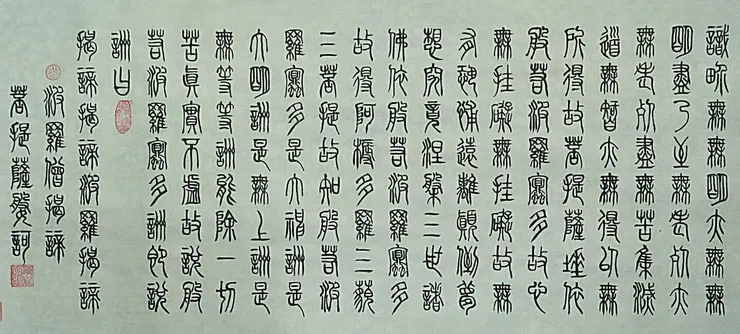 識界無無明亦無無
明盡乃至無老死亦
無老死盡無苦集滅
道無智亦無得以無
所得故菩提薩埵依
般若波羅蜜多故心
無挂礙無挂礙故無
有恐怖遠離顛倒夢
想究竟涅槃三世諸
佛依般若波羅蜜多
故得阿耨多羅三藐
三菩提故知般若波
羅蜜多是大神咒是
大明咒是無上咒是
無等等咒能除一切
苦真實不虛故說般
若波羅蜜多咒即說
咒曰
揭諦揭諦波羅揭諦
波羅僧揭諦
菩提薩婆訶